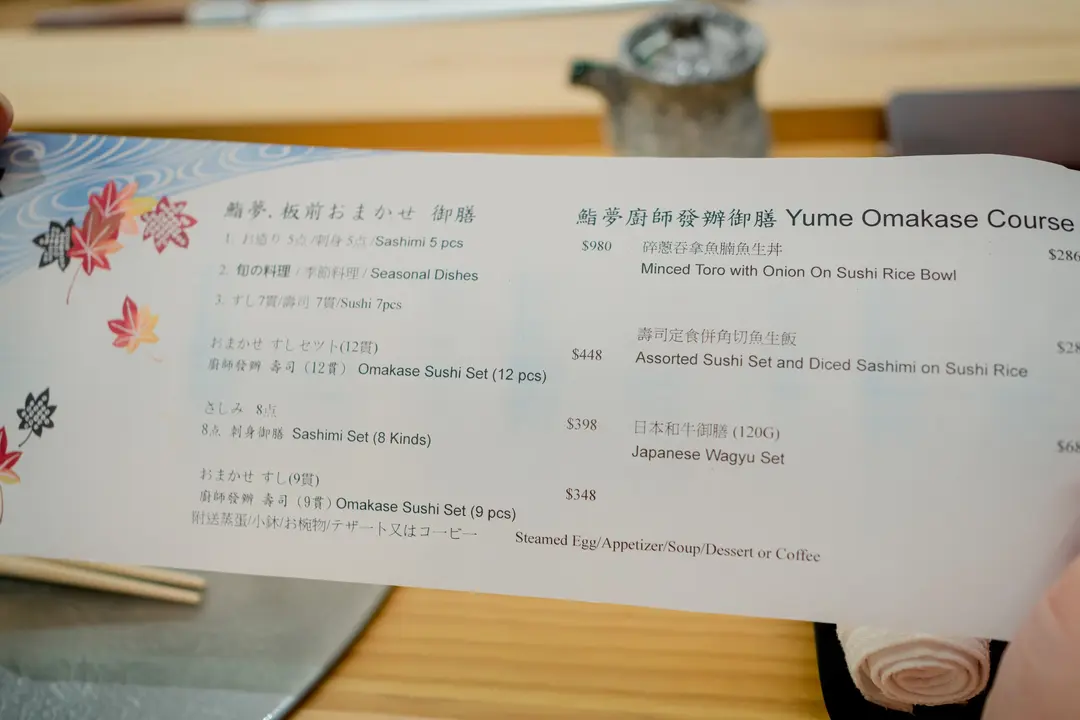 鮨夢.板前おまかせ 御膳
1. お造り 5点 /刺身 5点 /Sashimi 5 pcs
2. 旬の料理 / 季節料理 / Seasonal Dishes
3. すし7貫/壽司 7貫/Sushi 7pcs
おまかせ すしセツト(12貫)
廚師發辦 壽司 (12貫) Omakase Sushi Set (12 pcs)
さしみ 8点
8点 刺身御膳 Sashimi Set (8 Kinds)
おまかせ すし(9貫)
廚師發辦 壽司 (9貫) Omakase Sushi Set (9 pcs)
附送蒸蛋/小鉢/お椀物/テザート又はコーヒー
Steamed Egg/Appetizer/Soup/Dessert or Coffee
鮨夢廚師發辦御膳 Yume Omakase Course
$980
$448
$398
$348
碎蔥吞拿魚腩魚生丼
Minced Toro with Onion On Sushi Rice Bowl
$286
壽司定食併角切魚生飯
Assorted Sushi Set and Diced Sashimi on Sushi Rice
日本和牛御膳 (120G)
Japanese Wagyu Set